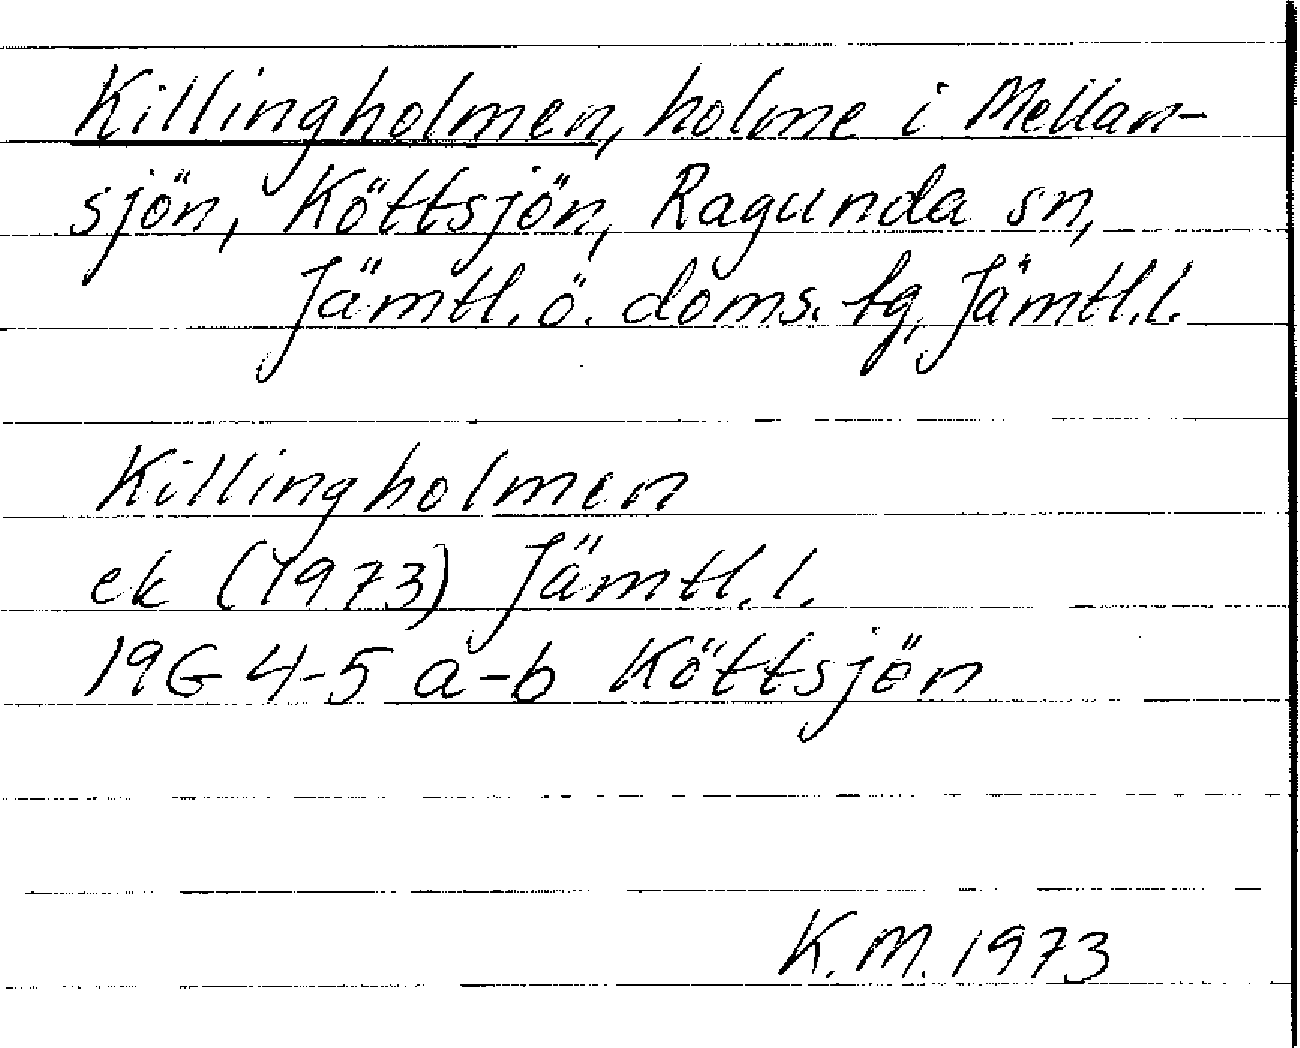 Killingholmen, holme i Mellan-
sjön, Köttsjön, Ragunda sn,
Jämtl. ö. doms. tg, Jämtl.l.
Killingholmen
ek (1973) Jämtl.l.
19G 4-5 a-b Köttsjön
K.M. 1973